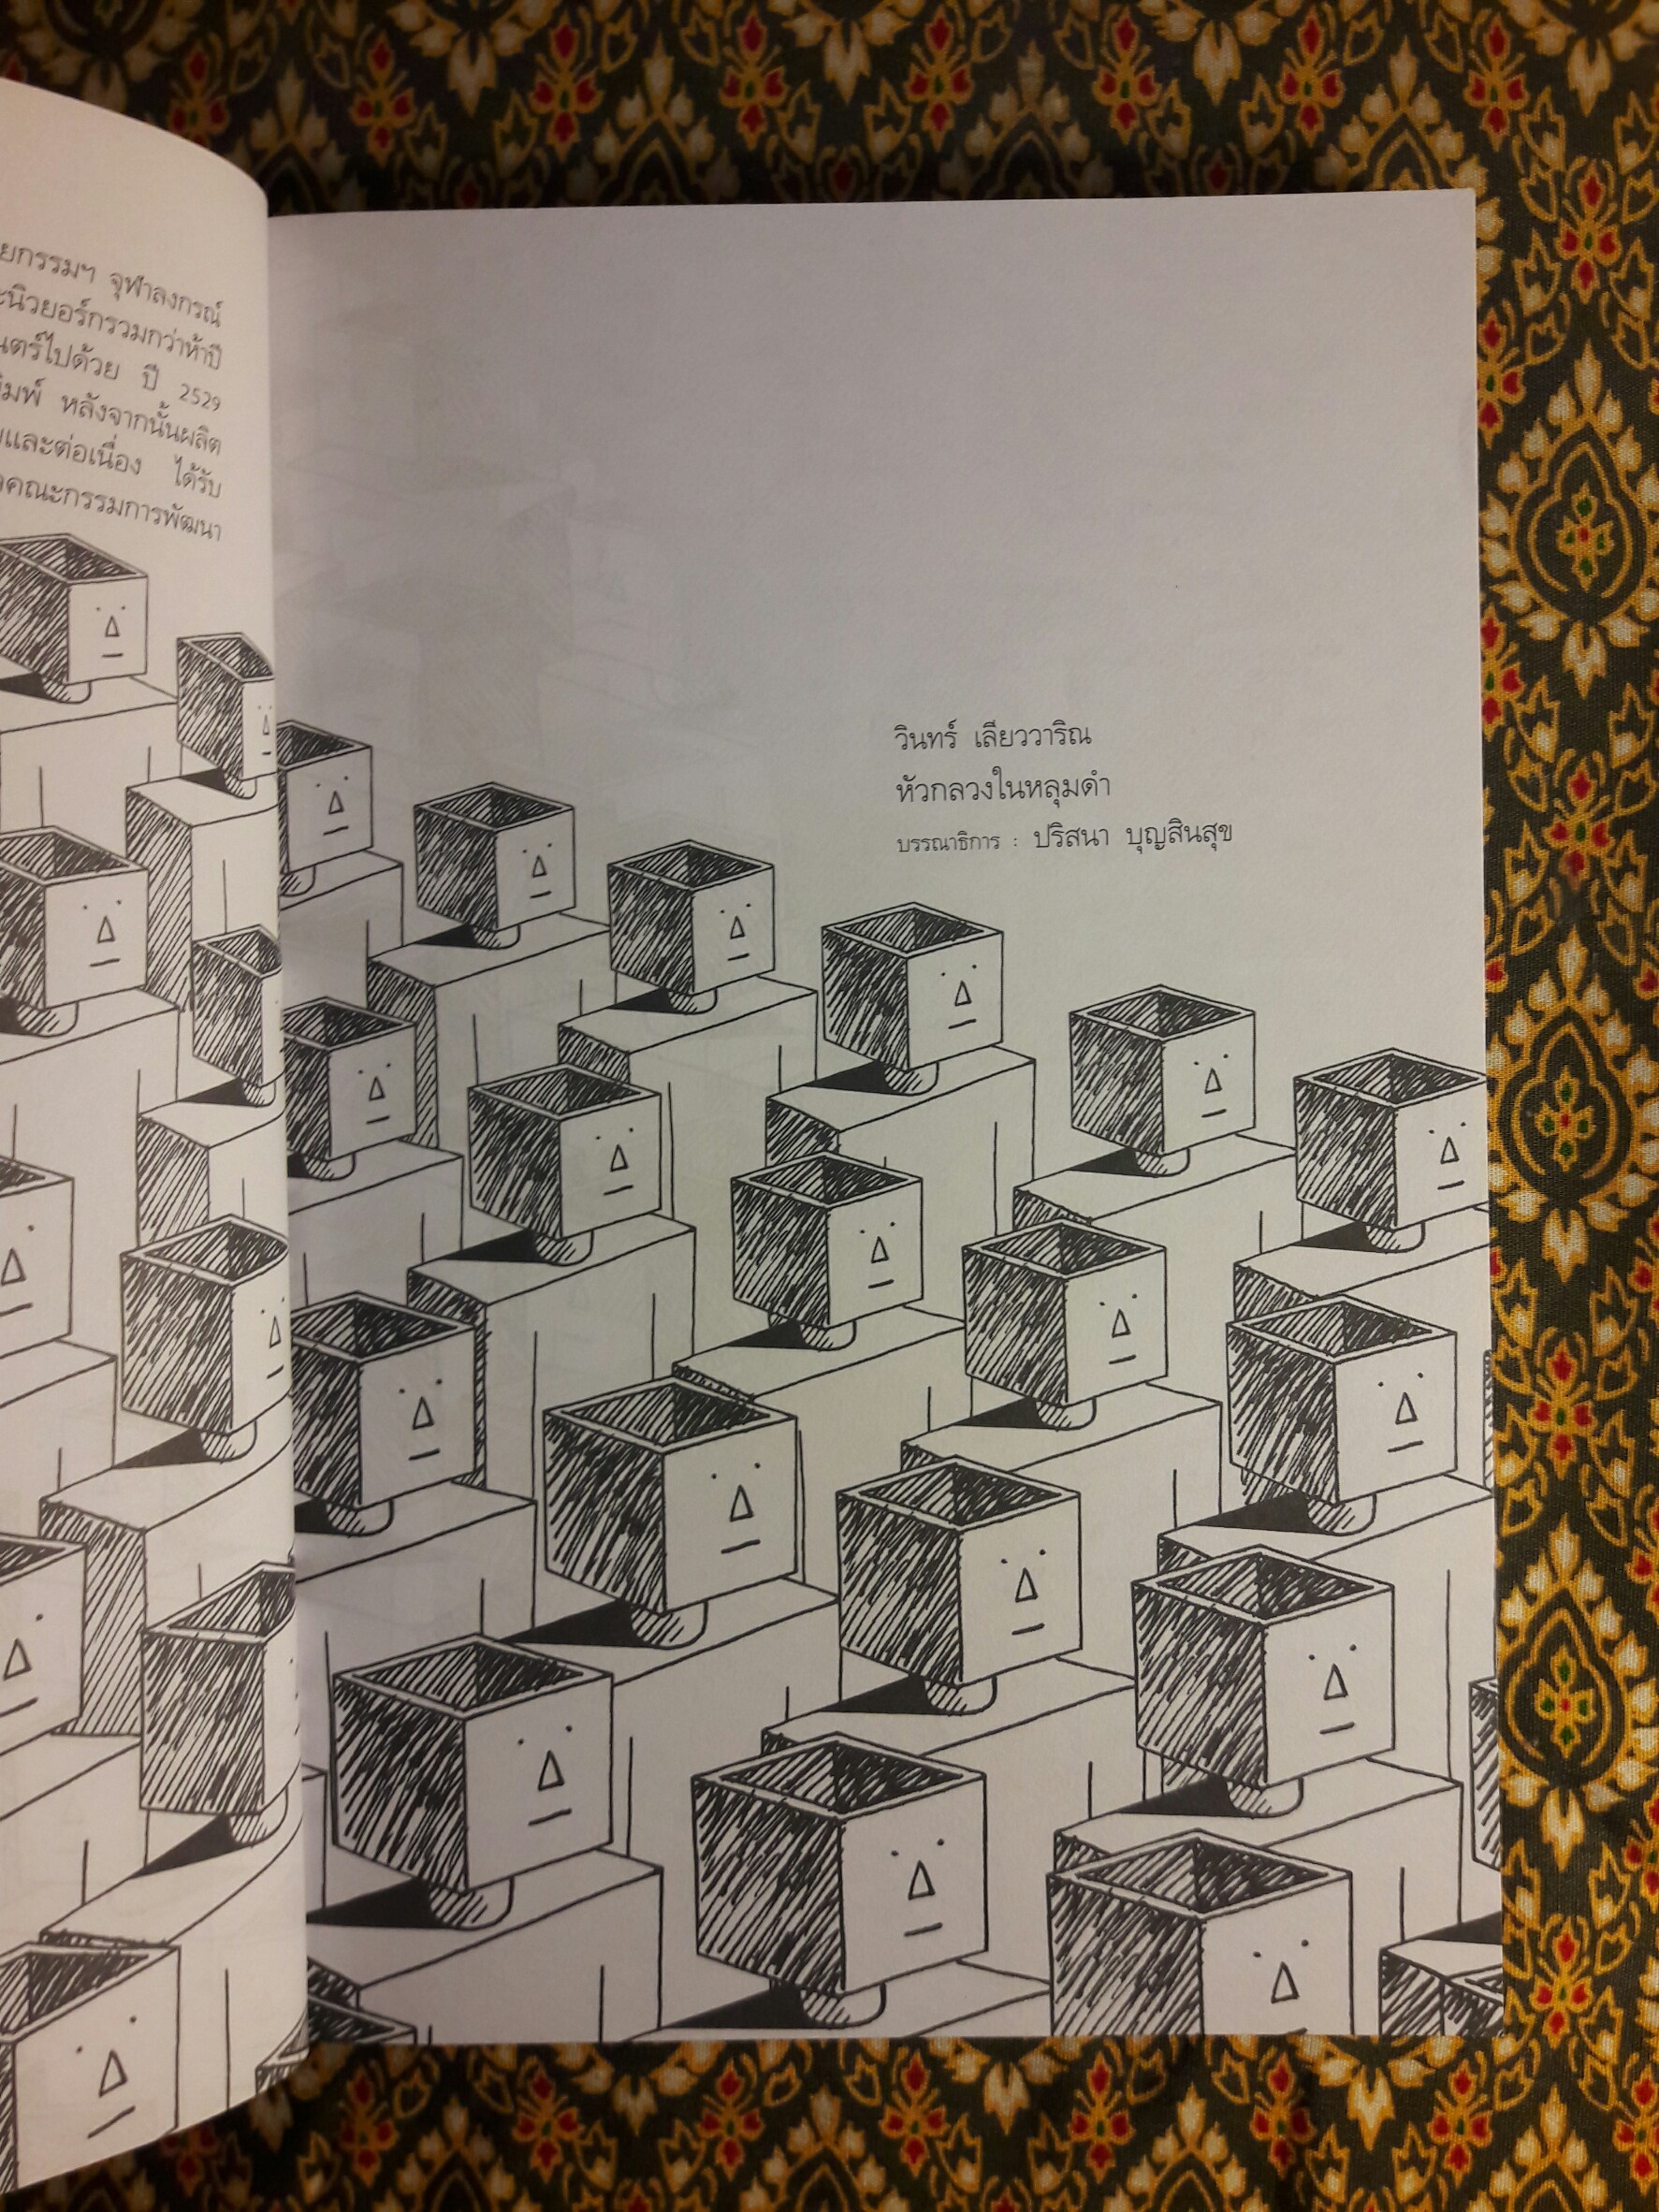 จุฬาลงกรณ์
นิวยอร์กรวมกว่าห้าปี
ไปด้วย ปี 2529
หลังจากนั้นผลิต
และต่อเนื่อง ได้รับ
คณะกรรมการพัฒนา
วินทร์ เลียววาริณ
หัวกลวงในหลุมดำ
บรรณาธิการ : ปริสนา บุญสินสุข